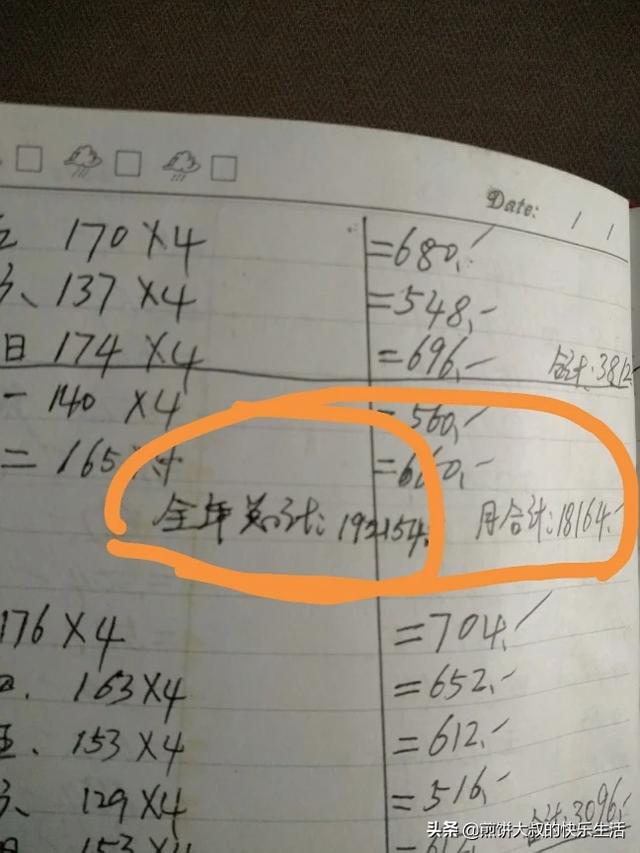 Date: / /
五 170×4 =680.-
六、137×4 =548.-
日 174×4 =696.- 合计:3812.-
一 140×4 =560.-
二 165×4 =660.-
全年总计:192154. 月合计:18164.-
176×4 =704.-
四. 163×4 =652.-
五. 153×4 =612.-
六、129×4 =516.- 合计:3096.-
日 153×4
头条 @煎饼大叔的快乐生活